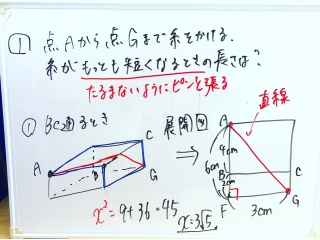 1 点Aから点Gまで糸をかける。
糸がもっとも短くなるときの長さは?
たるまないようにピンと張る
① BC通るとき
展開図
直線
A
B
C
G
⇒
A
4cm
6cm
B
2cm
F
3cm
C
G
x²=9+36=45
x=3√5